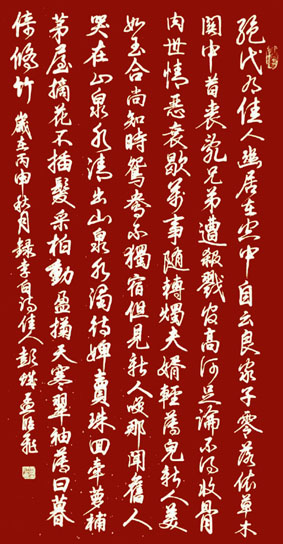 絕代有佳人幽居在空中自云良家子零落依草木
關中昔喪亂兄弟遭殺戮官高何足論不得收骨
内世情惡衰歇萬事隨轉燭夫婿輕薄兒新人美
如玉合尚知時鴛鴦不獨宿但見新人笑那聞舊人
哭在山泉水清出山泉水濁侍婢賣珠回牽蘿補
茅屋摘花不插髮采柏動盈掬天寒翠袖薄日暮
倚修竹 歲在丙申秋月録李白詩佳人彭城孟